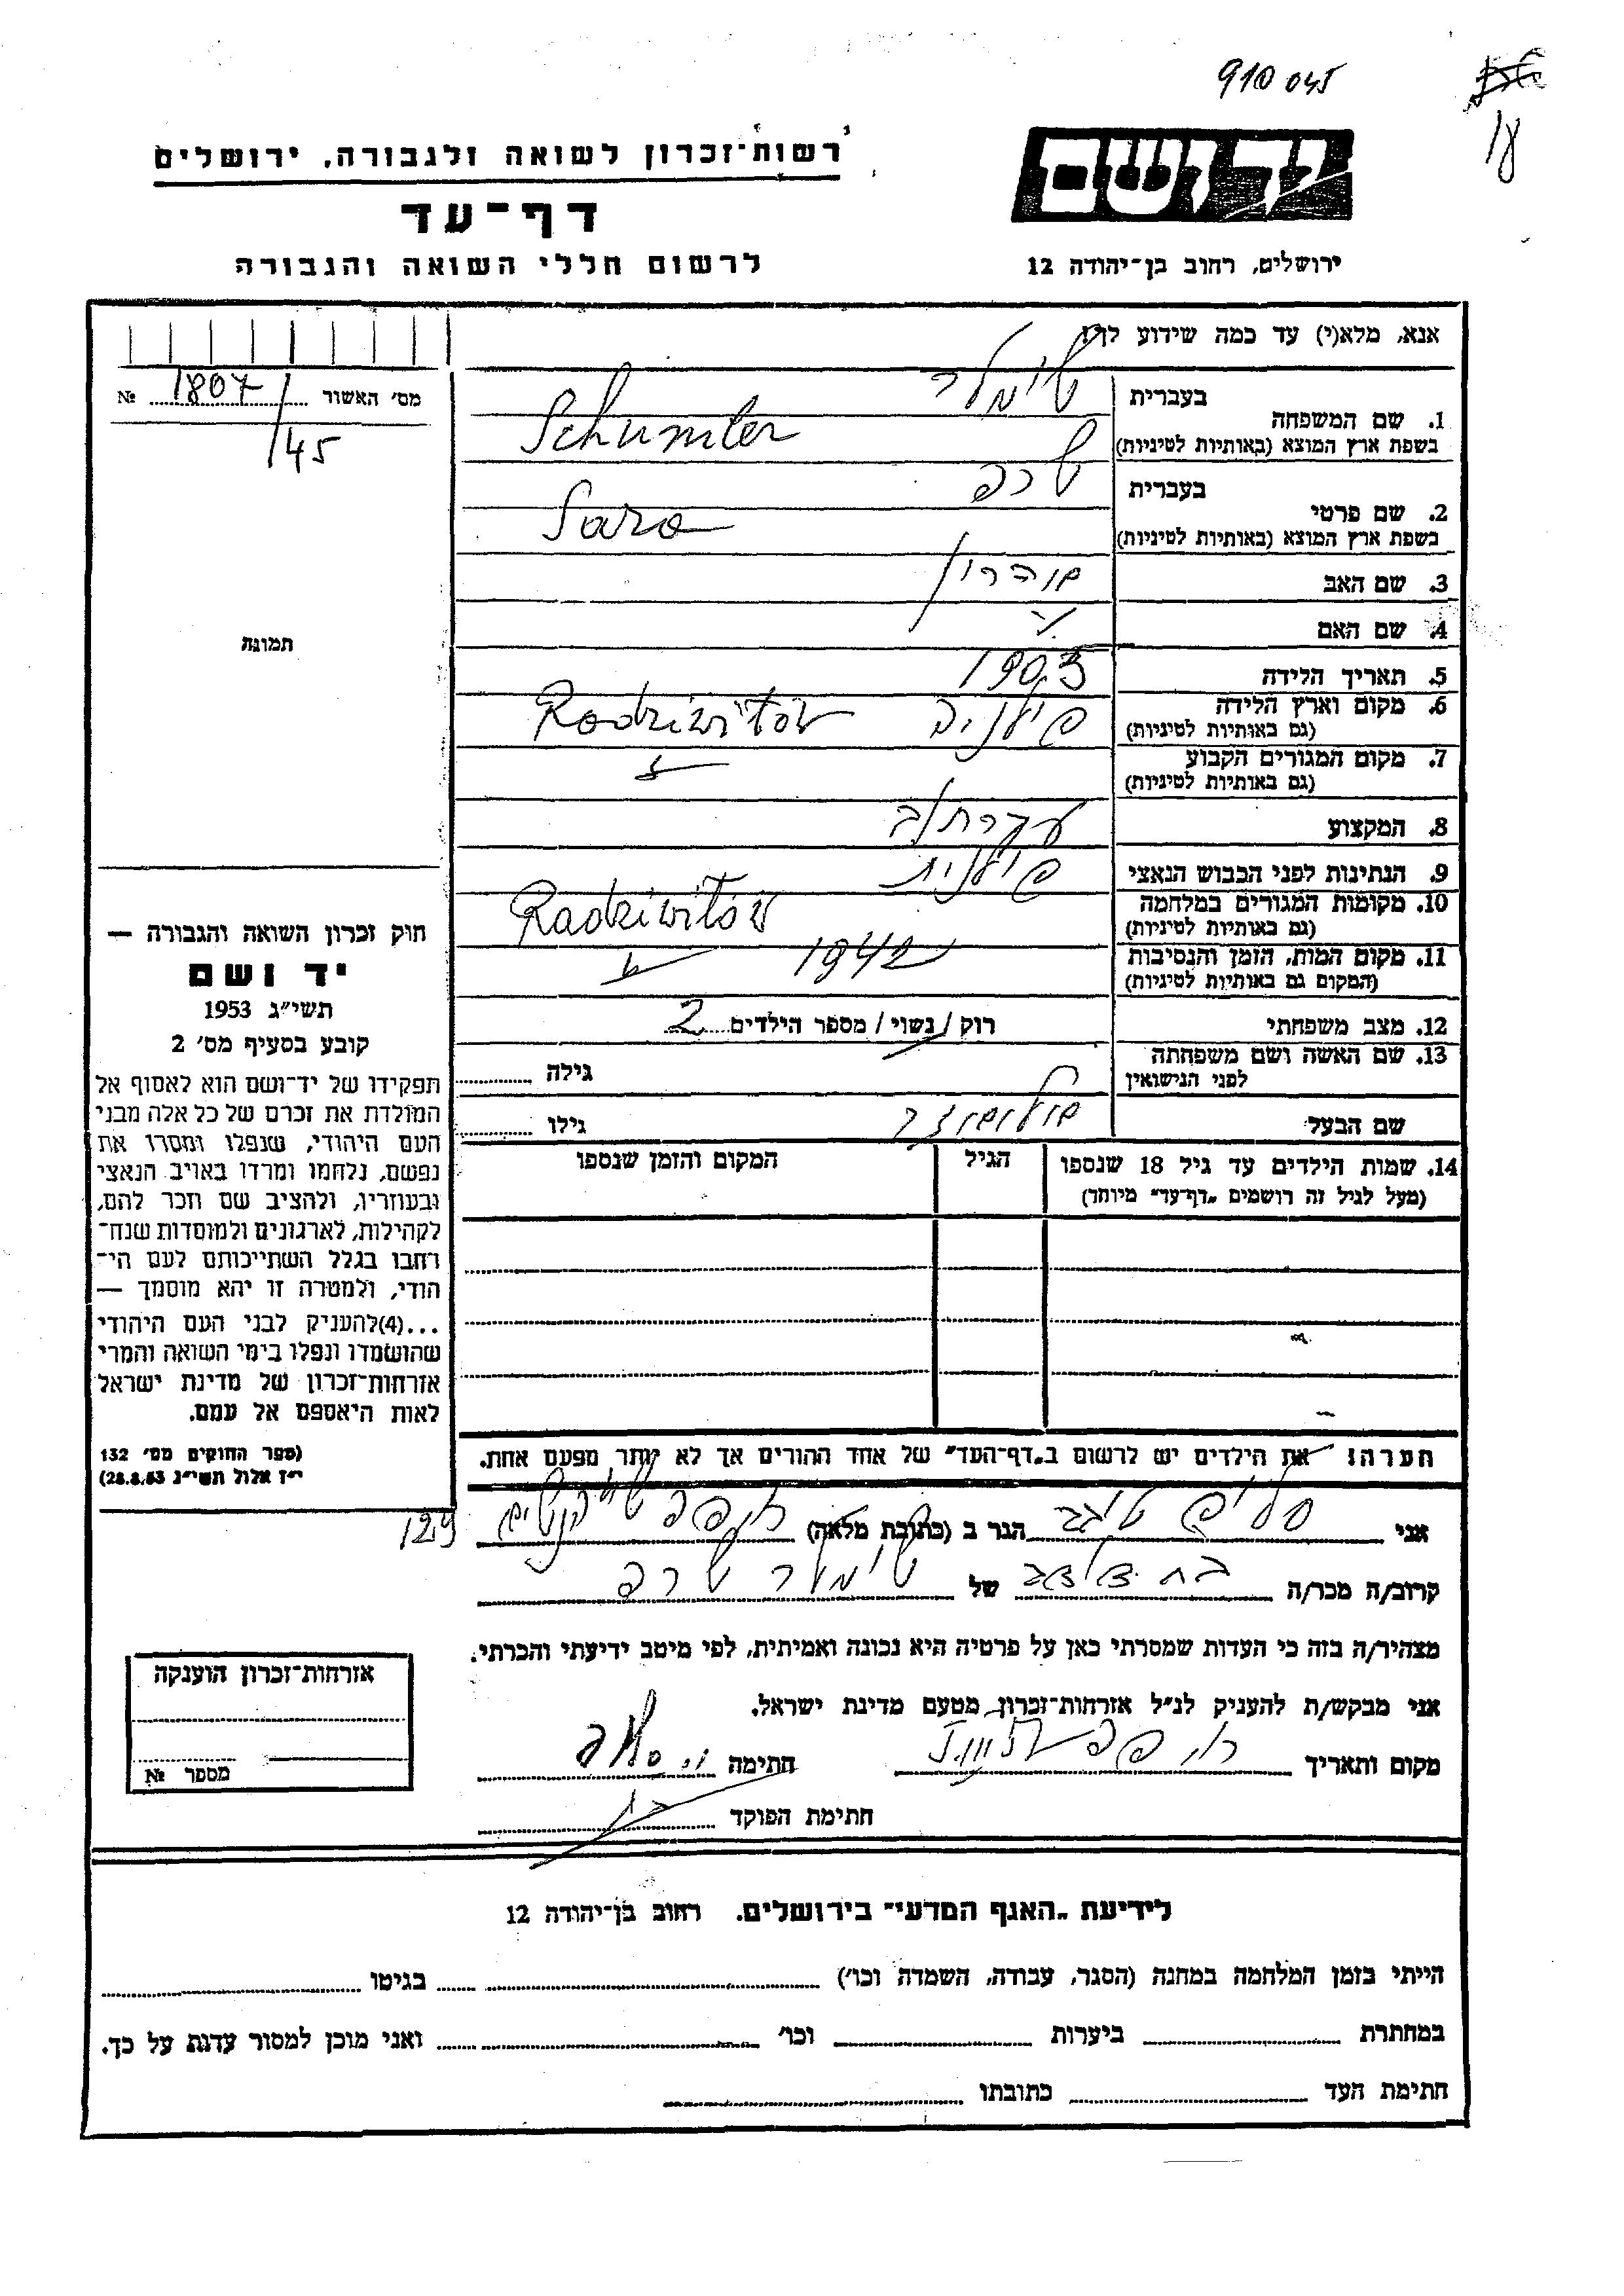 910 045
18
יד ושם
רשות־זכרון לשואה ולגבורה, ירושלים
דף־עד
לרשום חללי השואה והגבורה
ירושלים, רחוב בן־יהודה 12
אנא, מלא(י) עד כמה שידוע לך!
מס׳ האשור 1807 №
/45
בעברית שימלר
1. שם המשפחה
בשפת ארץ המוצא (באותיות לטיניות) Schumler
בעברית שרה
2. שם פרטי
בשפת ארץ המוצא (באותיות לטיניות) Sara
3. שם האב אהרון
4. שם האם
5. תאריך הלידה 1905
6. מקום וארץ הלידה
(גם באותיות לטיניות) Radziwiłów
7. מקום המגורים הקבוע
(גם באותיות לטיניות)
8. המקצוע עקרת
9. הנתינות לפני הכבוש הנאצי פולנית
10. מקומות המגורים במלחמה
(גם באותיות לטיניות) Radziwiłów
11. מקום המות, הזמן והנסיבות
(המקום גם באותיות לטיניות) 1942
12. מצב משפחתי רוק / נשוי / מספר הילדים 2
13. שם האשה ושם משפחתה
לפני הנישואין גילה
שם הבעל גילו
14. שמות הילדים עד גיל 18 שנספו
(מעל לגיל זה רושמים „דף־עד״ מיוחד)
הגיל
המקום והזמן שנספו
הערה: את הילדים יש לרשום ב„דף־העד״ של אחד ההורים אך לא יותר מפעם אחת.
תמונה
חוק זכרון השואה והגבורה —
יד ושם
תשי״ג 1953
קובע בסעיף מס׳ 2
תפקידו של יד־ושם הוא לאסוף אל
המולדת את זכרם של כל אלה מבני
העם היהודי, שנפלו ומסרו את
נפשם, נלחמו ומרדו באויב הנאצי
ובעוזריו, ולהציב שם וזכר להם,
לקהילות, לארגונים ולמוסדות שנח־
רבו בגלל השתייכותם לעם הי־
הודי, ולמטרה זו יהא מוסמך —
...(4)להעניק לבני העם היהודי
שהושמדו ונפלו בימי השואה והמרי
אזרחות־זכרון של מדינת ישראל
לאות היאספם אל עמם.
(ספר החוקים מס׳ 132
י״ז אלול תשי״ג 28.8.53)
אני הגר ב (כתובת מלאה) חיפה
קרוב/ה מכר/ה של שימלר שרה
מצהיר/ה בזה כי העדות שמסרתי כאן על פרטיה היא נכונה ואמיתית, לפי מיטב ידיעתי והכרתי.
אני מבקש/ת להעניק לנ״ל אזרחות־זכרון מטעם מדינת ישראל.
מקום ותאריך חיפה חתימה
חתימת הפוקד
אזרחות־זכרון הוענקה
מספר №
לידיעת „האגף המדעי״ בירושלים. רחוב בן־יהודה 12
הייתי בזמן המלחמה במחנה (הסגר, עבודה, השמדה וכו׳) בגיטו
במחתרת ביערות וכו׳ ואני מוכן למסור עדות על כך.
חתימת העד כתובתו